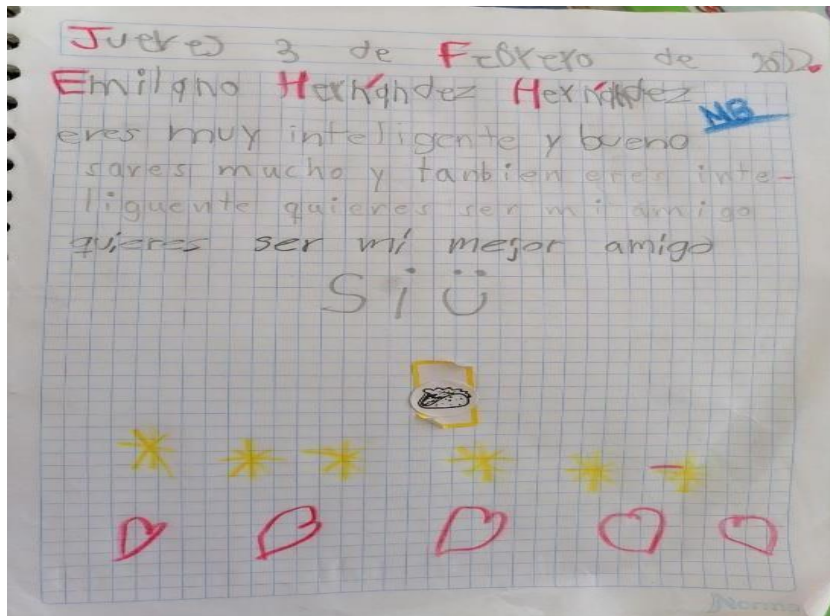 Jueves 3 de Febrero de 2022.
Emilano Hernández Hernández
MB
eres muy inteligente y bueno
saves mucho y tanbien eres inte-
liguente quieres ser mi amigo
quieres ser mi mejor amigo
Si Ü
Norma